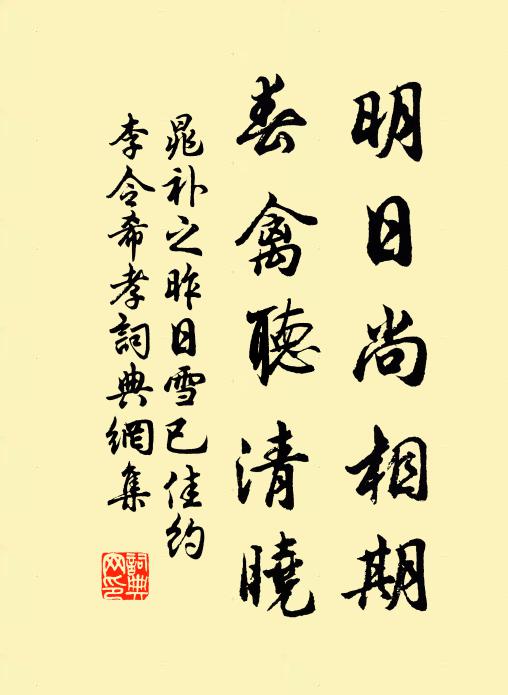 明日尚相期
春禽聽清曉
晁补之昨日雪已佳约
李令希孝詞典網集
詞典
网印